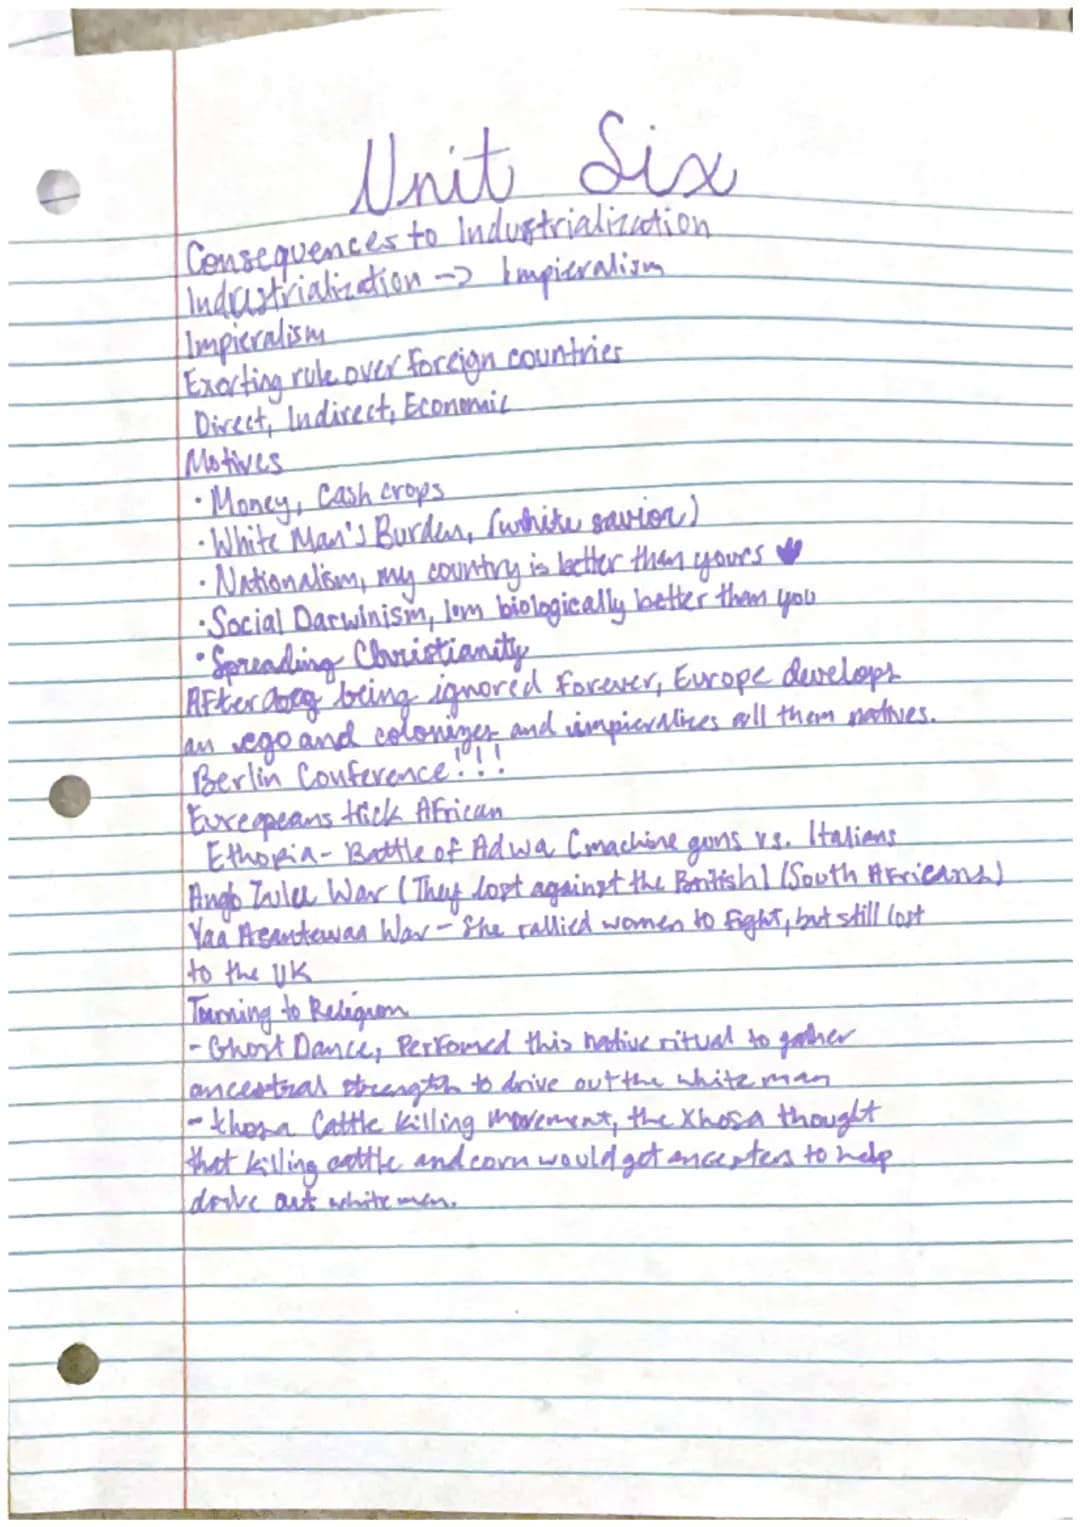 Unit Six
Consequences to Industrialization
Industrialization -> Impieralism
Impieralism
Exorting rule over foreign countries
Direct, Indirect, Economic
Motives
· Money, Cash crops
· White Man's Burden, (white savior)
· Nationalism, my country is better than yours
· Social Darwinism, Iom biologically better than you
· Spreading Christianity
After being ignored forever, Europe develops
an ego and colonizes and impieralizes all them natives.
Berlin Conference!!!
Eureopeans trick African
Ethopia- Battle of Adwa (machine guns vs. Italians
Anglo Zulu War (They lost against the British) (South Africans)
Yaa Asantewaa War - She rallied women to fight, but still lost
to the UK
Turning to Religion
- Ghost Dance, Perfomed this native ritual to gather
ancestral strength to drive out the white man
- Xhosa Cattle Killing Movement, the Xhosa thought
that killing cattle and corn would get ancesters to help
drive out white men.